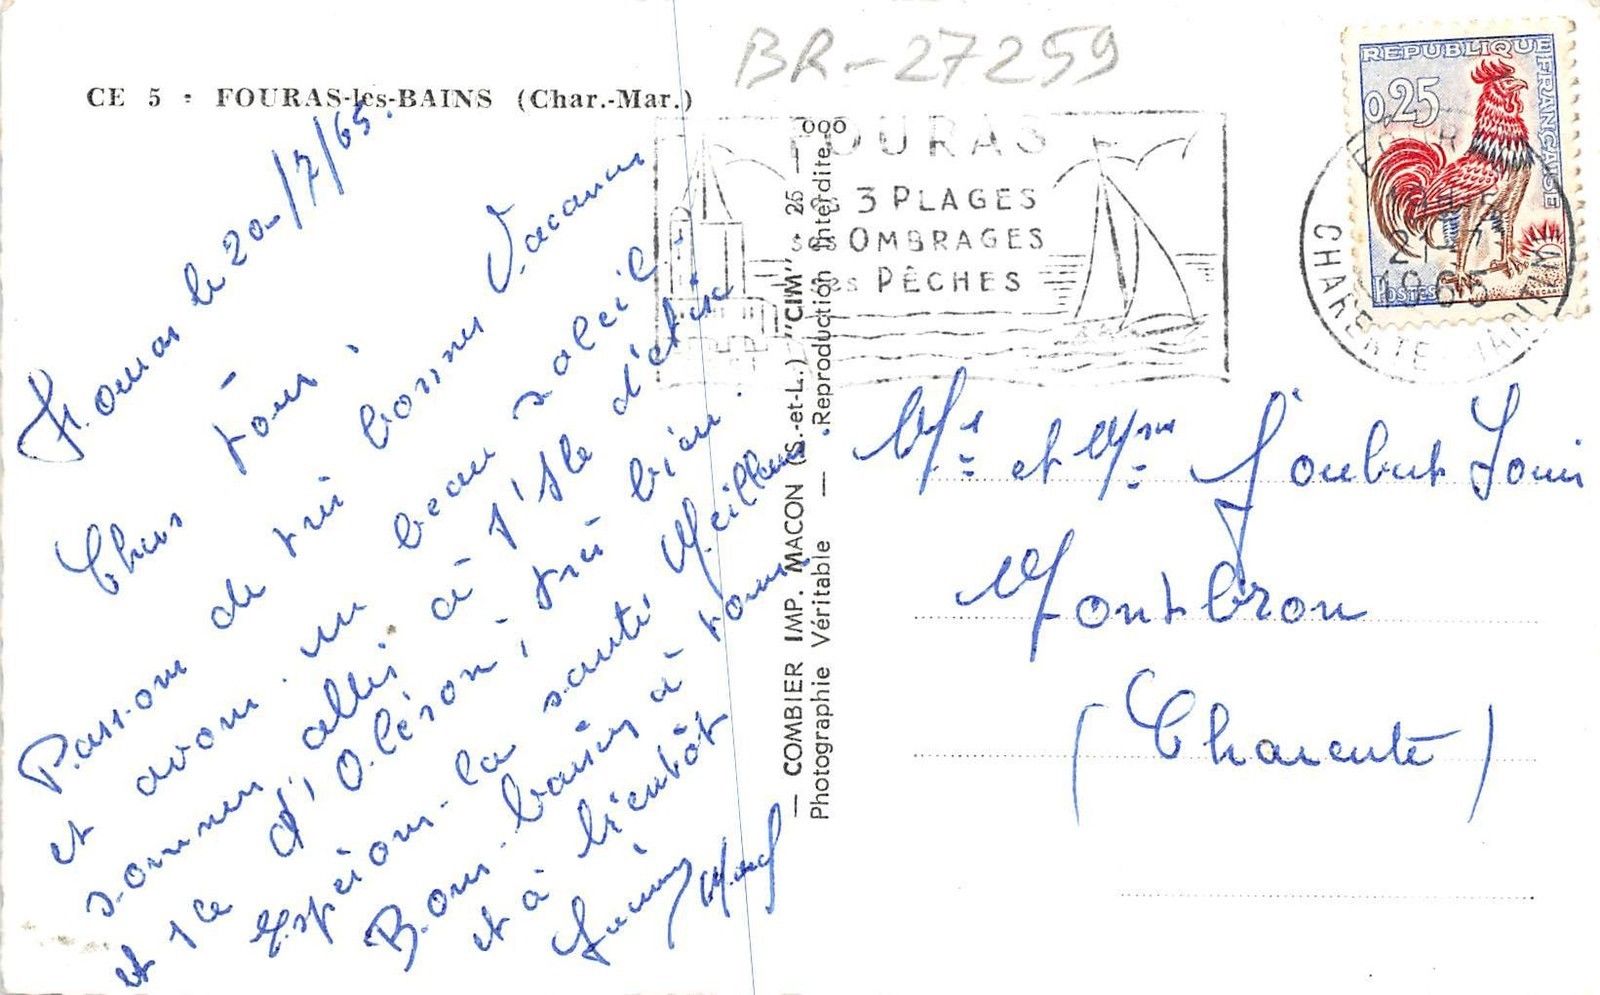 BR-27259
CE 5 - FOURAS-les-BAINS (Char.-Mar.)
Fouras le 20/7/65.
Chers tous,
Passons de très bonnes Vacances
et avons un beau soleil.
sommes allés à l'Ile d'
et l'Ile d'Oléron, très bien.
espérons la santé, Meilleure.
Bons baisers à tous
et à bientôt
— COMBIER IMP. MACON (S.-et-L.) "CIM" 25 — 000
Photographie Véritable — Reproduction Interdite
FOURAS
3 PLAGES
ses OMBRAGES
ses PÊCHES
REPUBLIQUE FRANÇAISE
0,25
POSTES
CHARENTE MARITIME
1965
Mr et Mme Joubert Louis
Montbron
(Charente)